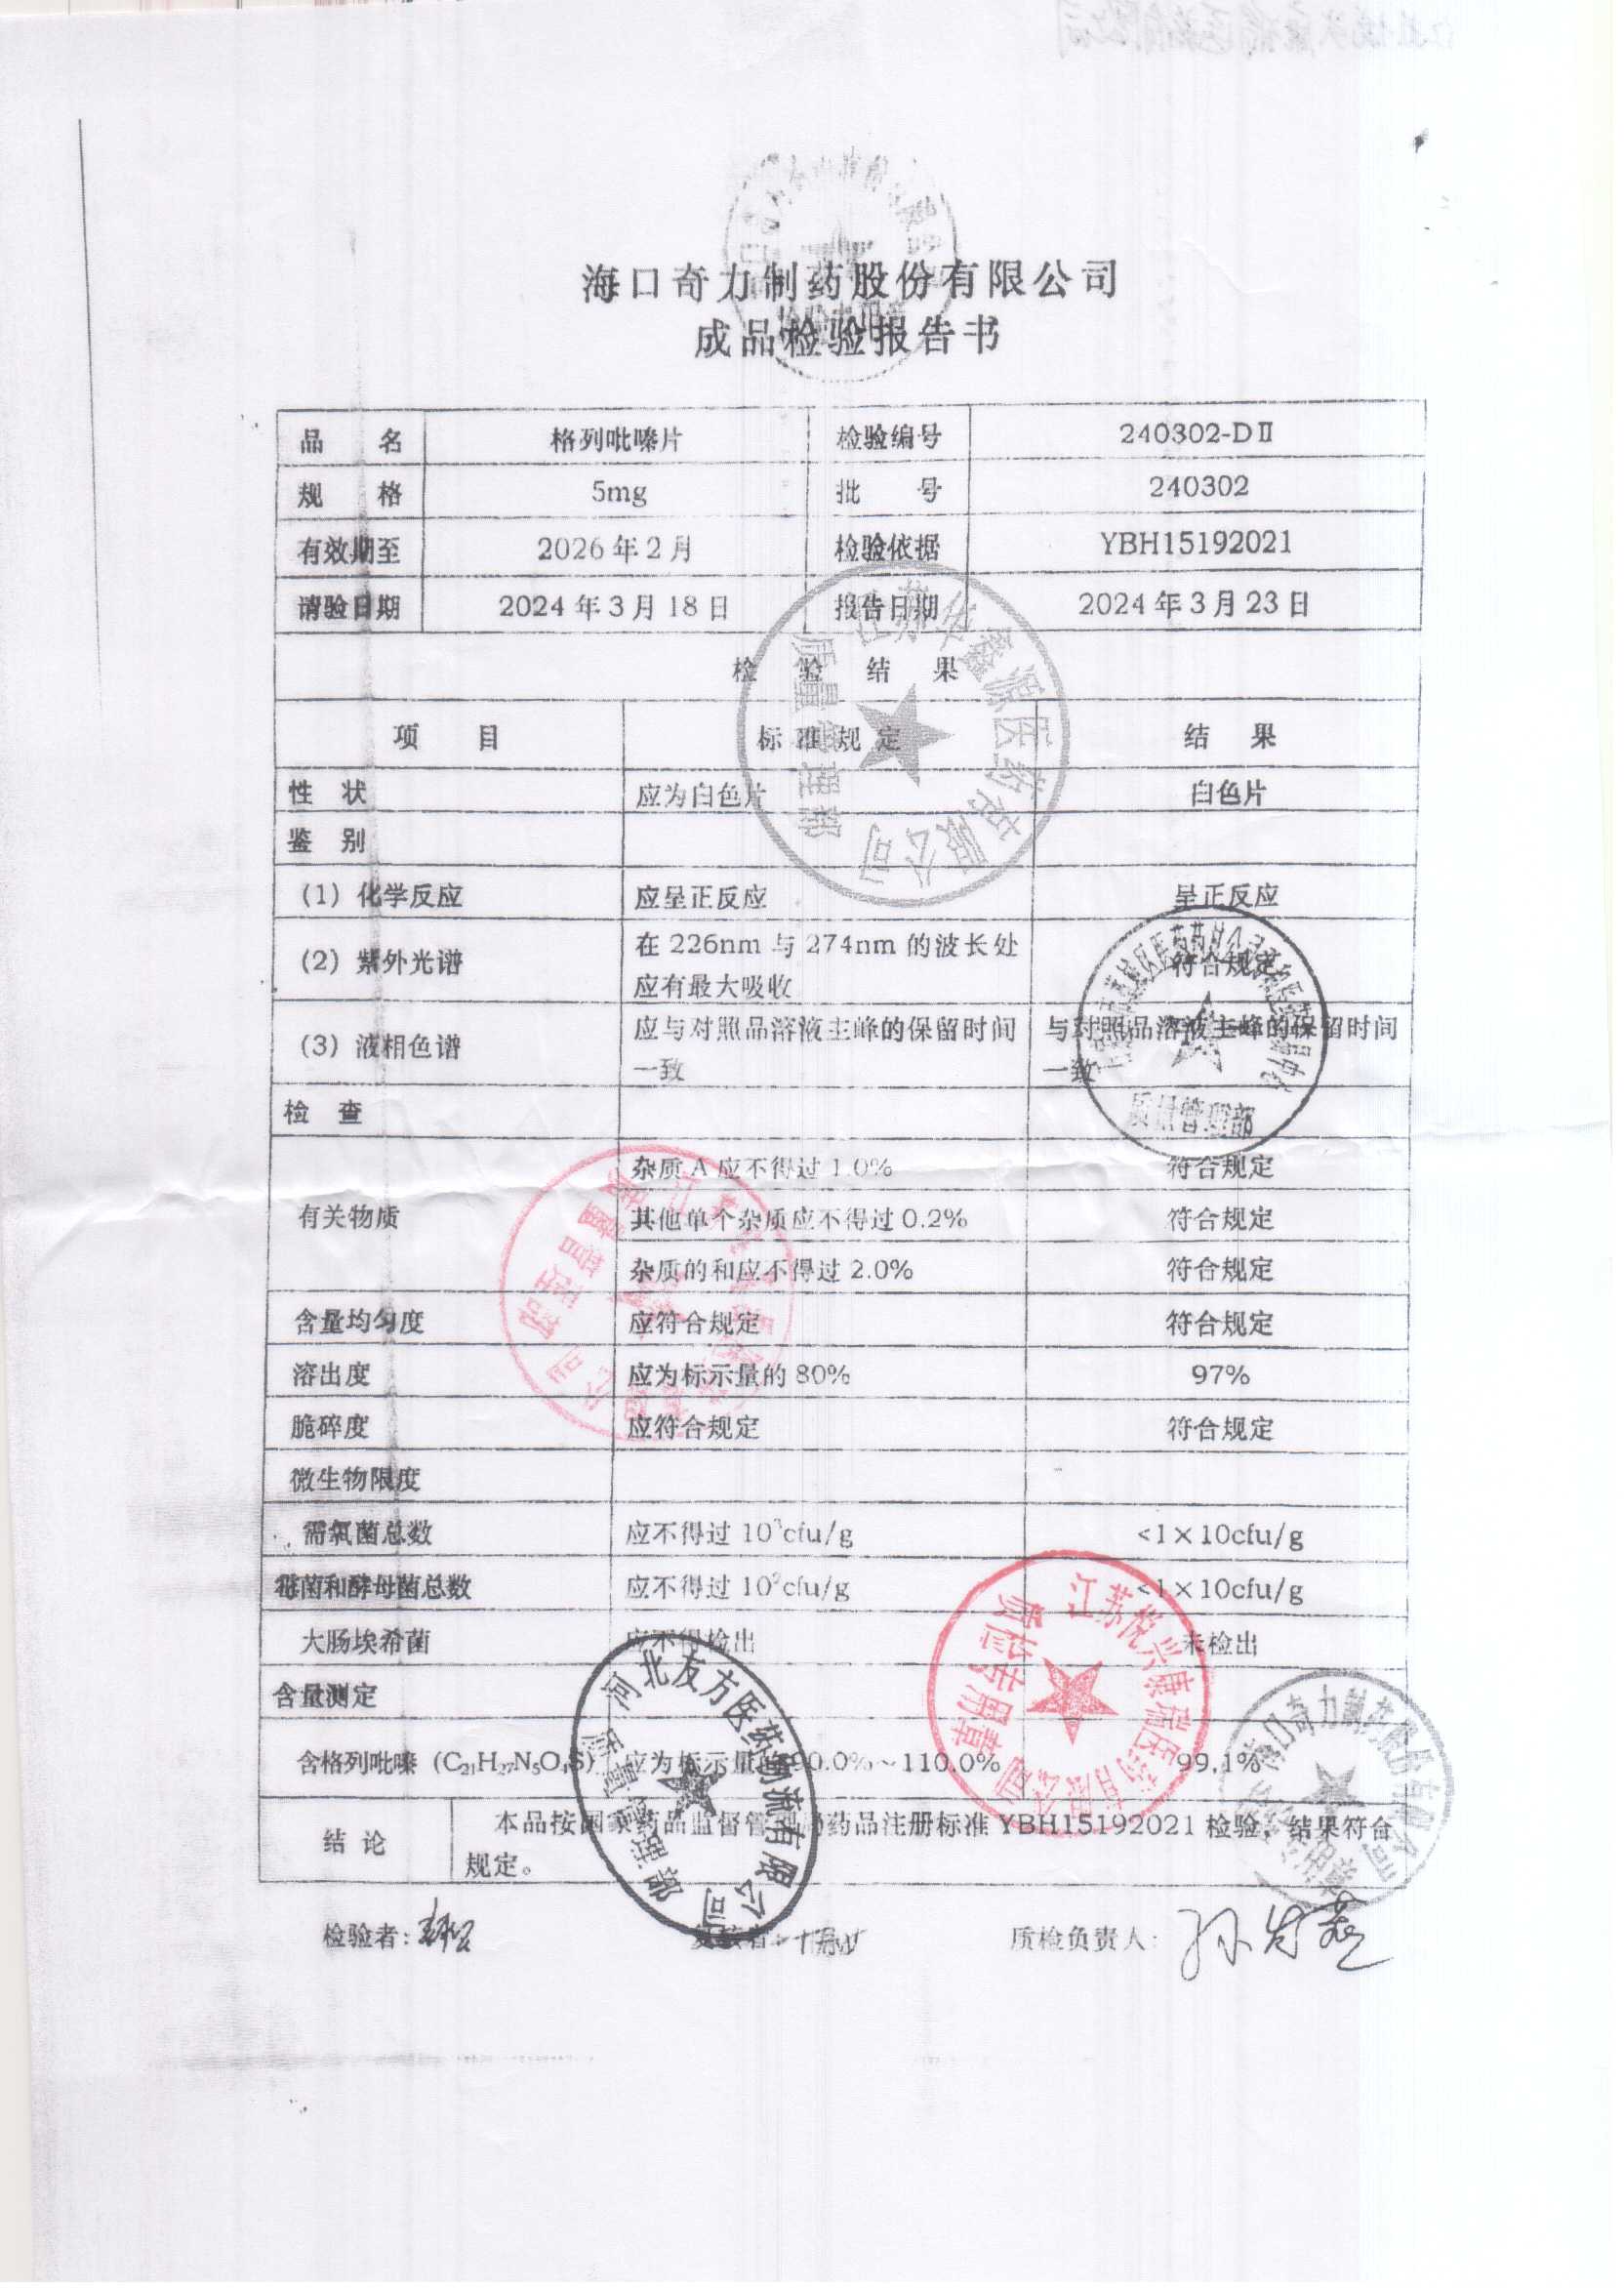 海口奇力制药股份有限公司
成品检验报告书
品 名 格列吡嗪片 检验编号 240302-DⅡ
规 格 5mg 批 号 240302
有效期至 2026年2月 检验依据 YBH15192021
请验日期 2024年3月18日 报告日期 2024年3月23日
检 验 结 果
项 目 标 准 规 定 结 果
性 状 应为白色片 白色片
鉴 别
(1) 化学反应 应呈正反应 呈正反应
(2) 紫外光谱 在 226nm 与 274nm 的波长处 符合规定
应有最大吸收
(3) 液相色谱 应与对照品溶液主峰的保留时间 与对照品溶液主峰的保留时间
一致 一致
检 查
有关物质 杂质 A 应不得过 1.0% 符合规定
其他单个杂质应不得过 0.2% 符合规定
杂质的和应不得过 2.0% 符合规定
含量均匀度 应符合规定 符合规定
溶出度 应为标示量的 80% 97%
脆碎度 应符合规定 符合规定
微生物限度
需氧菌总数 应不得过 10³cfu/g <1×10cfu/g
霉菌和酵母菌总数 应不得过 10²cfu/g <1×10cfu/g
大肠埃希菌 应不得检出 未检出
含量测定
含格列吡嗪 (C₂₁H₂₇N₅O₄S) 应为标示量的 90.0%～110.0% 99.1%
结 论 本品按国家药品监督管理局药品注册标准 YBH15192021 检验，结果符合
规定。
检验者: 复核者: 质检负责人:
质量管理部
江苏悦兴康瑞医药有限公司
质检专用章
河北友方医药物流有限公司
质量管理部